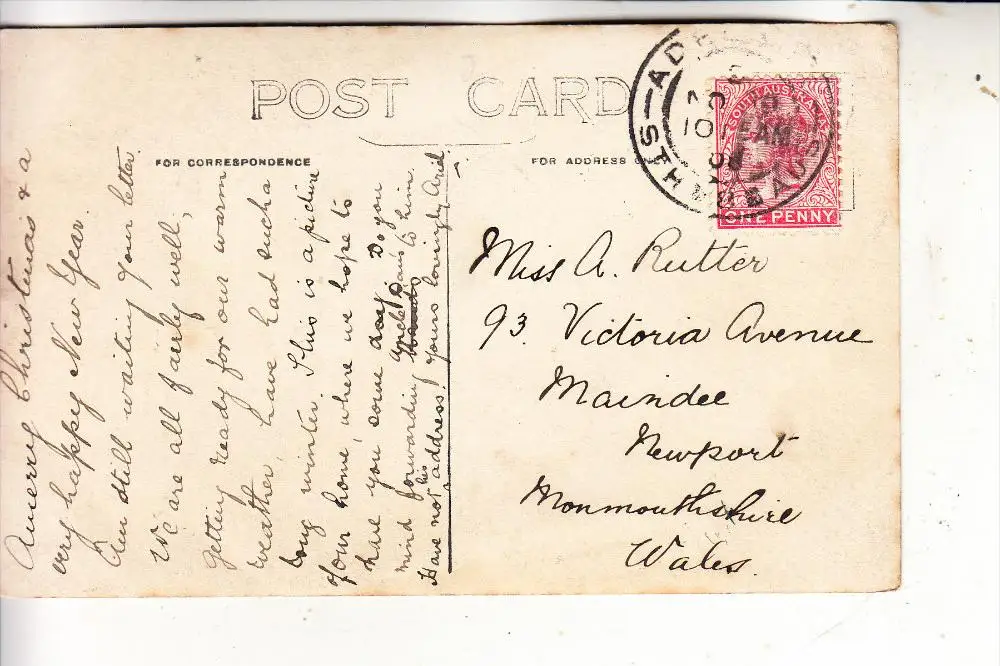 POST CARD
FOR CORRESPONDENCE
FOR ADDRESS ONLY
A merry Christmas & a
very happy New Year.
Am still waiting your letter
We are all fairly well,
getting ready for our warm
weather, have had such a
long winter. This is a picture
of our home, where we hope to
have you some day. Do you
mind forwarding Uncle to him.
Have not his address. Yours lovingly
SOUTH AUSTRALIA
ONE PENNY
Miss A. Rutter
93. Victoria Avenue
Maindee
Newport
Monmouthshire
Wales.